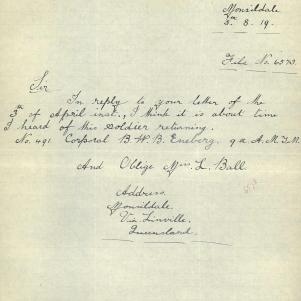 Monsildale
5th. 8. 19.
File No. 6573.
Sir
In reply to your letter of the
3rd of April inst., I think it is about time
I heard of this Soldier returning.
No. 491 Corporal B. W. B. Eneberg. 9th A. M. G. M.
And Oblige Mrs. L. Ball
Address.
Monsildale.
Via Linville.
Queensland.